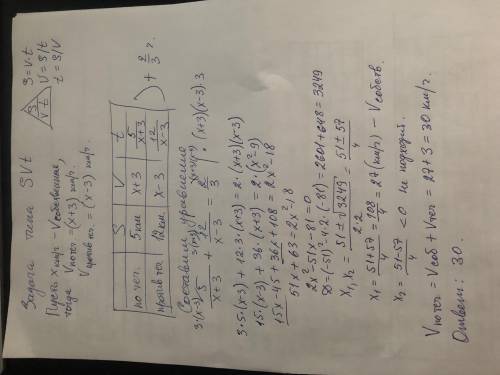 Задача типа SVt
S
V t
S = V·t
V = S/t
t = S/V
Пусть x км/ч - Vсобственная,
тогда Vпо теч. = (x+3) км/ч.
Vпротив теч. = (x-3) км/ч.
S V t
по теч. 5км x+3 5/(x+3)
против теч 12км x-3 12/(x-3)
+ 2/3 ч.
Составим уравнение
5/(x+3) + 12/(x-3) = 2/3 | · (x+3)(x-3)·3
3·5·(x-3) + 12·3·(x+3) = 2·(x+3)(x-3)
15·(x-3) + 36·(x+3) = 2·(x²-9)
15x-45+36x+108 = 2x²-18
51x+63=2x²-18
2x²-51x-81=0
D=(-51)²-4·2·(-81)=2601+648=3249
x₁,x₂ = (51±√3249)/(2·2) = (51±57)/4
x₁ = (51+57)/4 = 108/4 = 27 (км/ч) - Vсобств.
x₂ = (51-57)/4 < 0 не подходит.
Vпо теч = Vсоб + Vтеч = 27+3=30 км/ч.
Ответ: 30.